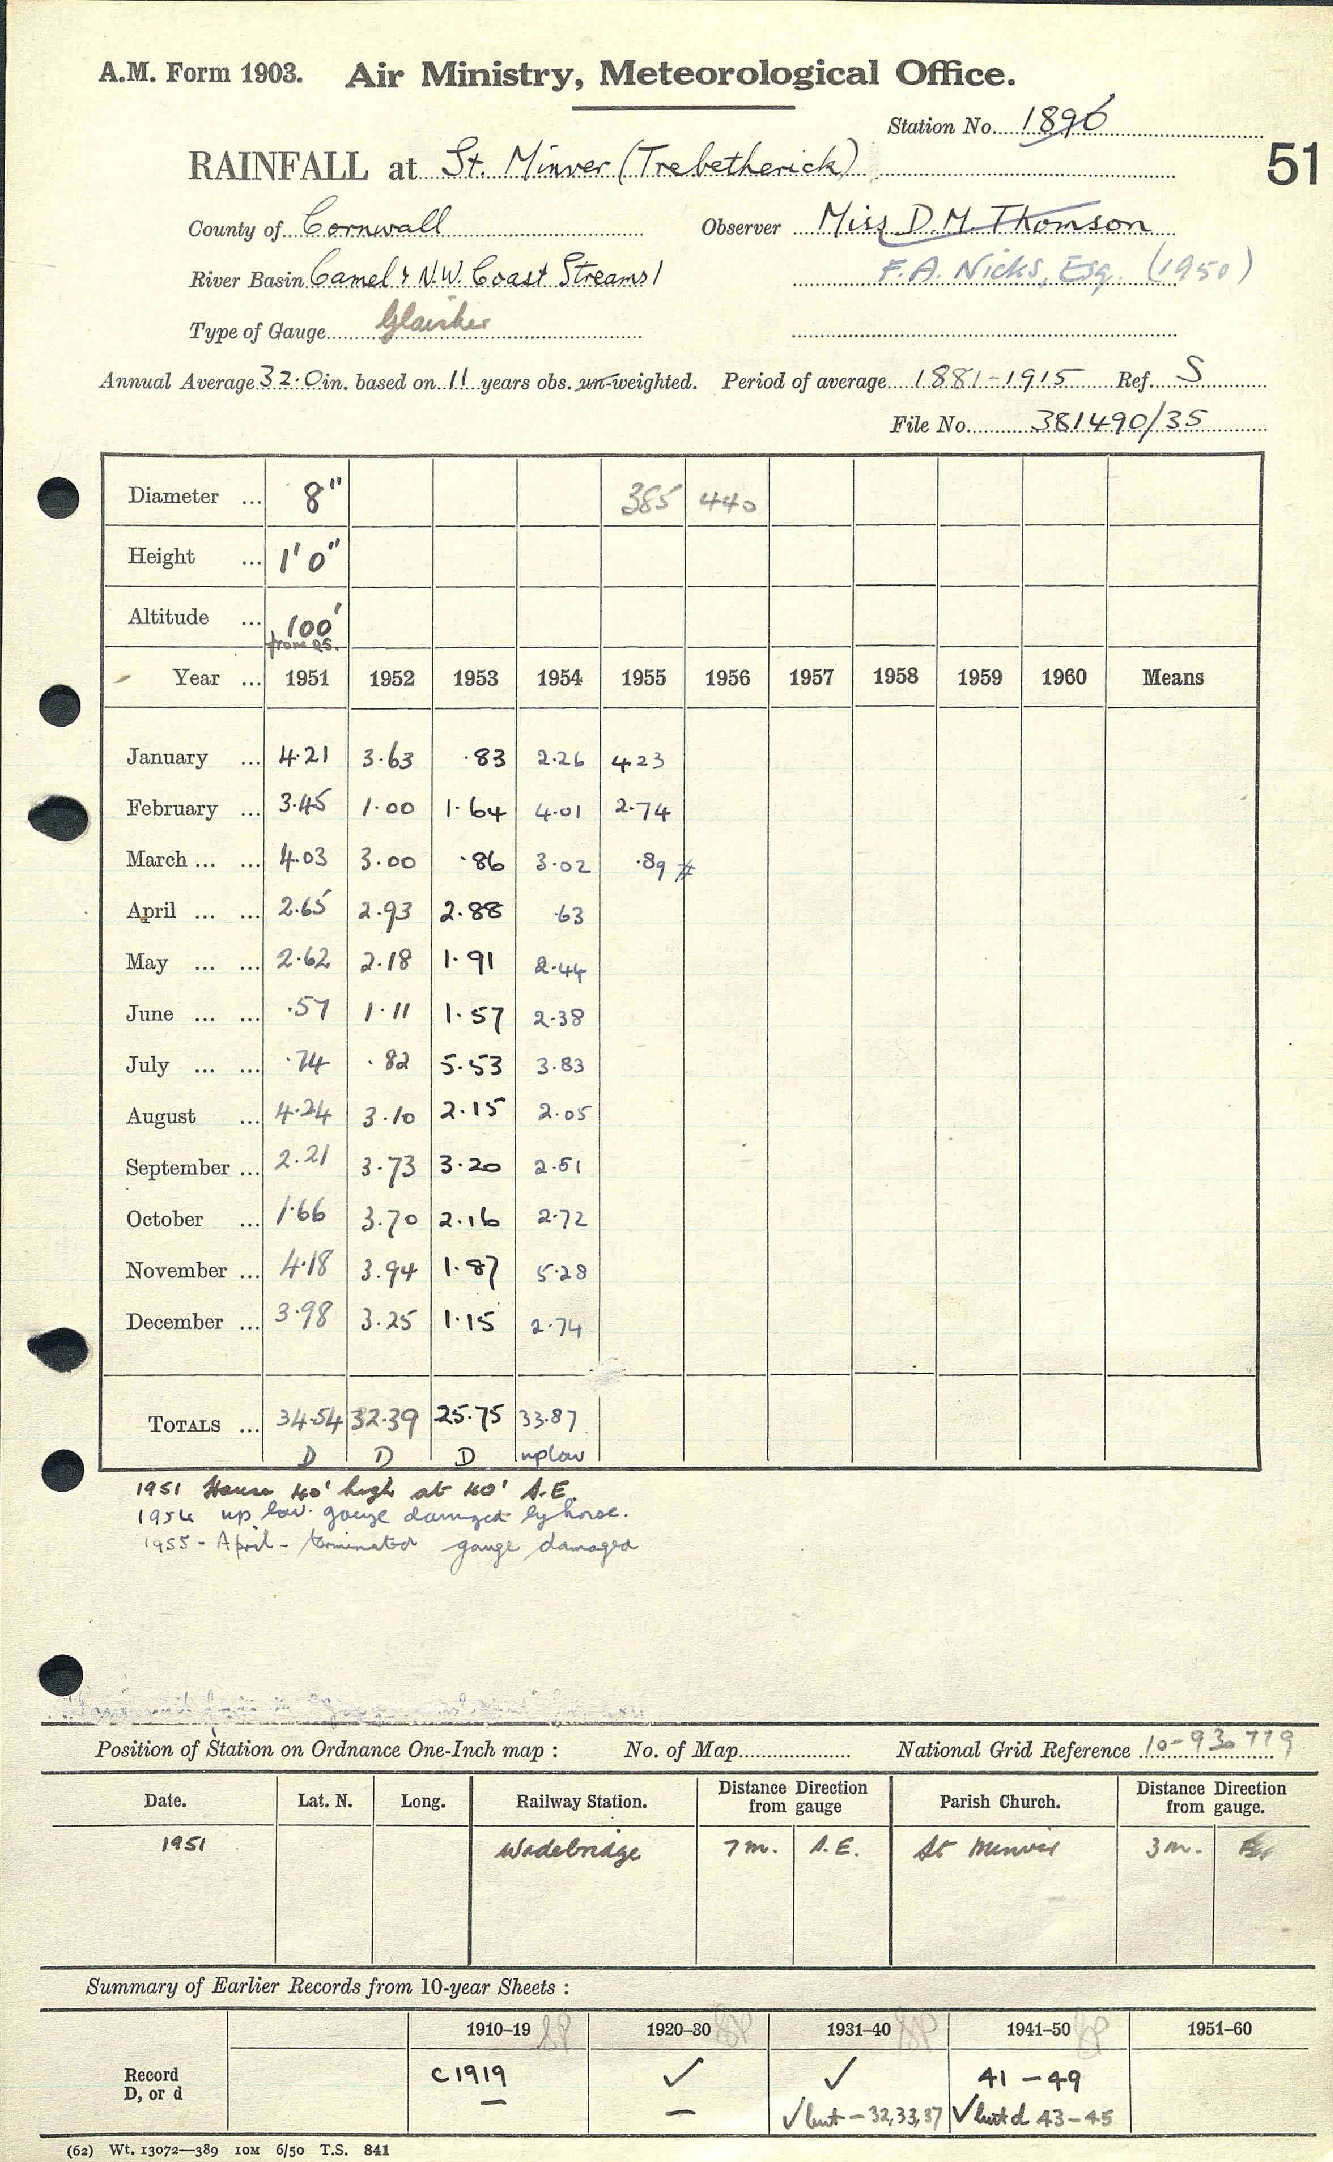 A.M. Form 1903. Air Ministry, Meteorological Office.
Station No. 1896
51
RAINFALL at St. Minver (Trebetherick)
County of Cornwall Observer Miss D.M. Thomson
River Basin Camel & N.W. Coast Streams F.A. Nicks, Esq. (1950)
Type of Gauge Glaisher
Annual Average 32.0 in. based on 11 years obs. un-weighted. Period of average 1881-1915 Ref. S
File No. 381490/35
Diameter ... 8" 385 440
Height ... 1' 0"
Altitude ... 100'
from 25.
Year ... 1951 1952 1953 1954 1955 1956 1957 1958 1959 1960 Means
January ... 4.21 3.63 .83 2.26 4.23
February ... 3.45 1.00 1.64 4.01 2.74
March ... ... 4.03 3.00 .86 3.02 .89 #
April ... ... 2.65 2.93 2.88 .63
May ... ... 2.62 2.18 1.91 2.44
June ... ... .57 1.11 1.57 2.38
July ... ... .74 .82 5.53 3.83
August ... 4.24 3.10 2.15 2.05
September ... 2.21 3.73 3.20 2.51
October ... 1.66 3.70 2.16 2.72
November ... 4.18 3.94 1.87 5.28
December ... 3.98 3.25 1.15 2.74
TOTALS ... 34.54 32.39 25.75 33.87
D D D up low
1951 House 40' high at 40' S.E.
1954 up low gauge damaged by horse.
1955 - April - terminated gauge damaged
Position of Station on Ordnance One-Inch map : No. of Map National Grid Reference 10-930779
Date. Lat. N. Long. Railway Station. Distance Direction from gauge Parish Church. Distance Direction from gauge.
1951 Wadebridge 7m. S.E. St Minver 3m.
Summary of Earlier Records from 10-year Sheets :
1910-19 1920-30 1931-40 1941-50 1951-60
Record C1919 ✓ ✓ 41 - 49
D, or d — — ✓ but - 32,33,37 ✓ but d 43-45
(62) Wt. 13072—389 10M 6/50 T.S. 841